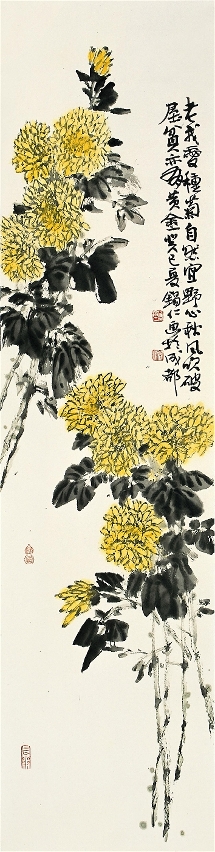 老我愛種菊自然宜野心秋風吹破
屋貧亦有黃金癸巳夏錫仁畫於成都